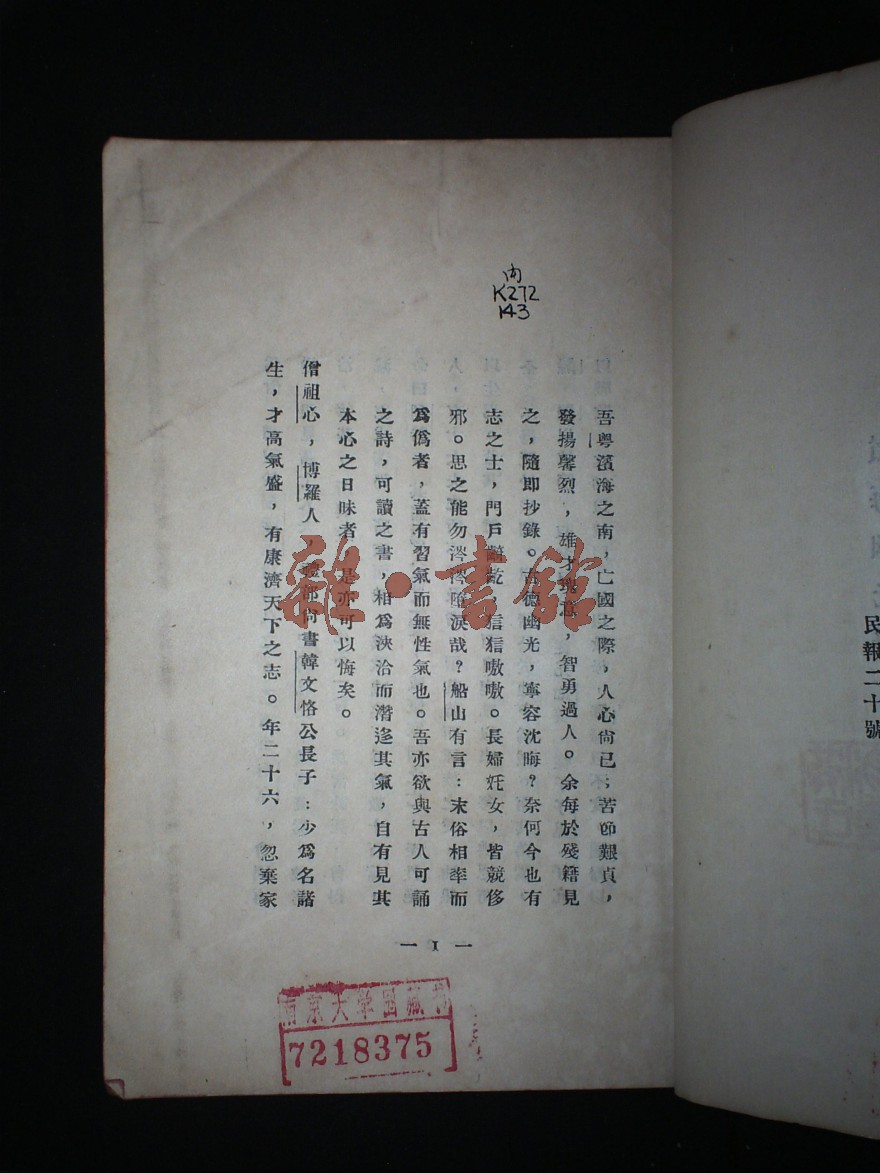 民報二十號
内
K272
143
吾粵濱海之南，亡國之際，人心尙已；苦節艱貞，
發揚馨烈，雄才瑰意，智勇過人。余每於殘籍見
之，隨即抄錄。古德幽光，寧容沈晦？奈何今也有
志之士，門戶齮齕，狺狺嗷嗷。長婦奼女，皆競侈
邪。思之能勿涔涔墮淚哉？船山有言：末俗相率而
爲僞者，蓋有習氣而無性氣也。吾亦欲與古人可誦
之詩，可讀之書，相爲浹洽而潛迻其氣，自有見其
本心之日昧者，是亦可以悔矣。
僧祖心，博羅人，禮部尙書韓文恪公長子：少爲名諸
生，才高氣盛，有康濟天下之志。年二十六，忽棄家
— 1 —
南京大学图藏书
7218375
雜·書館